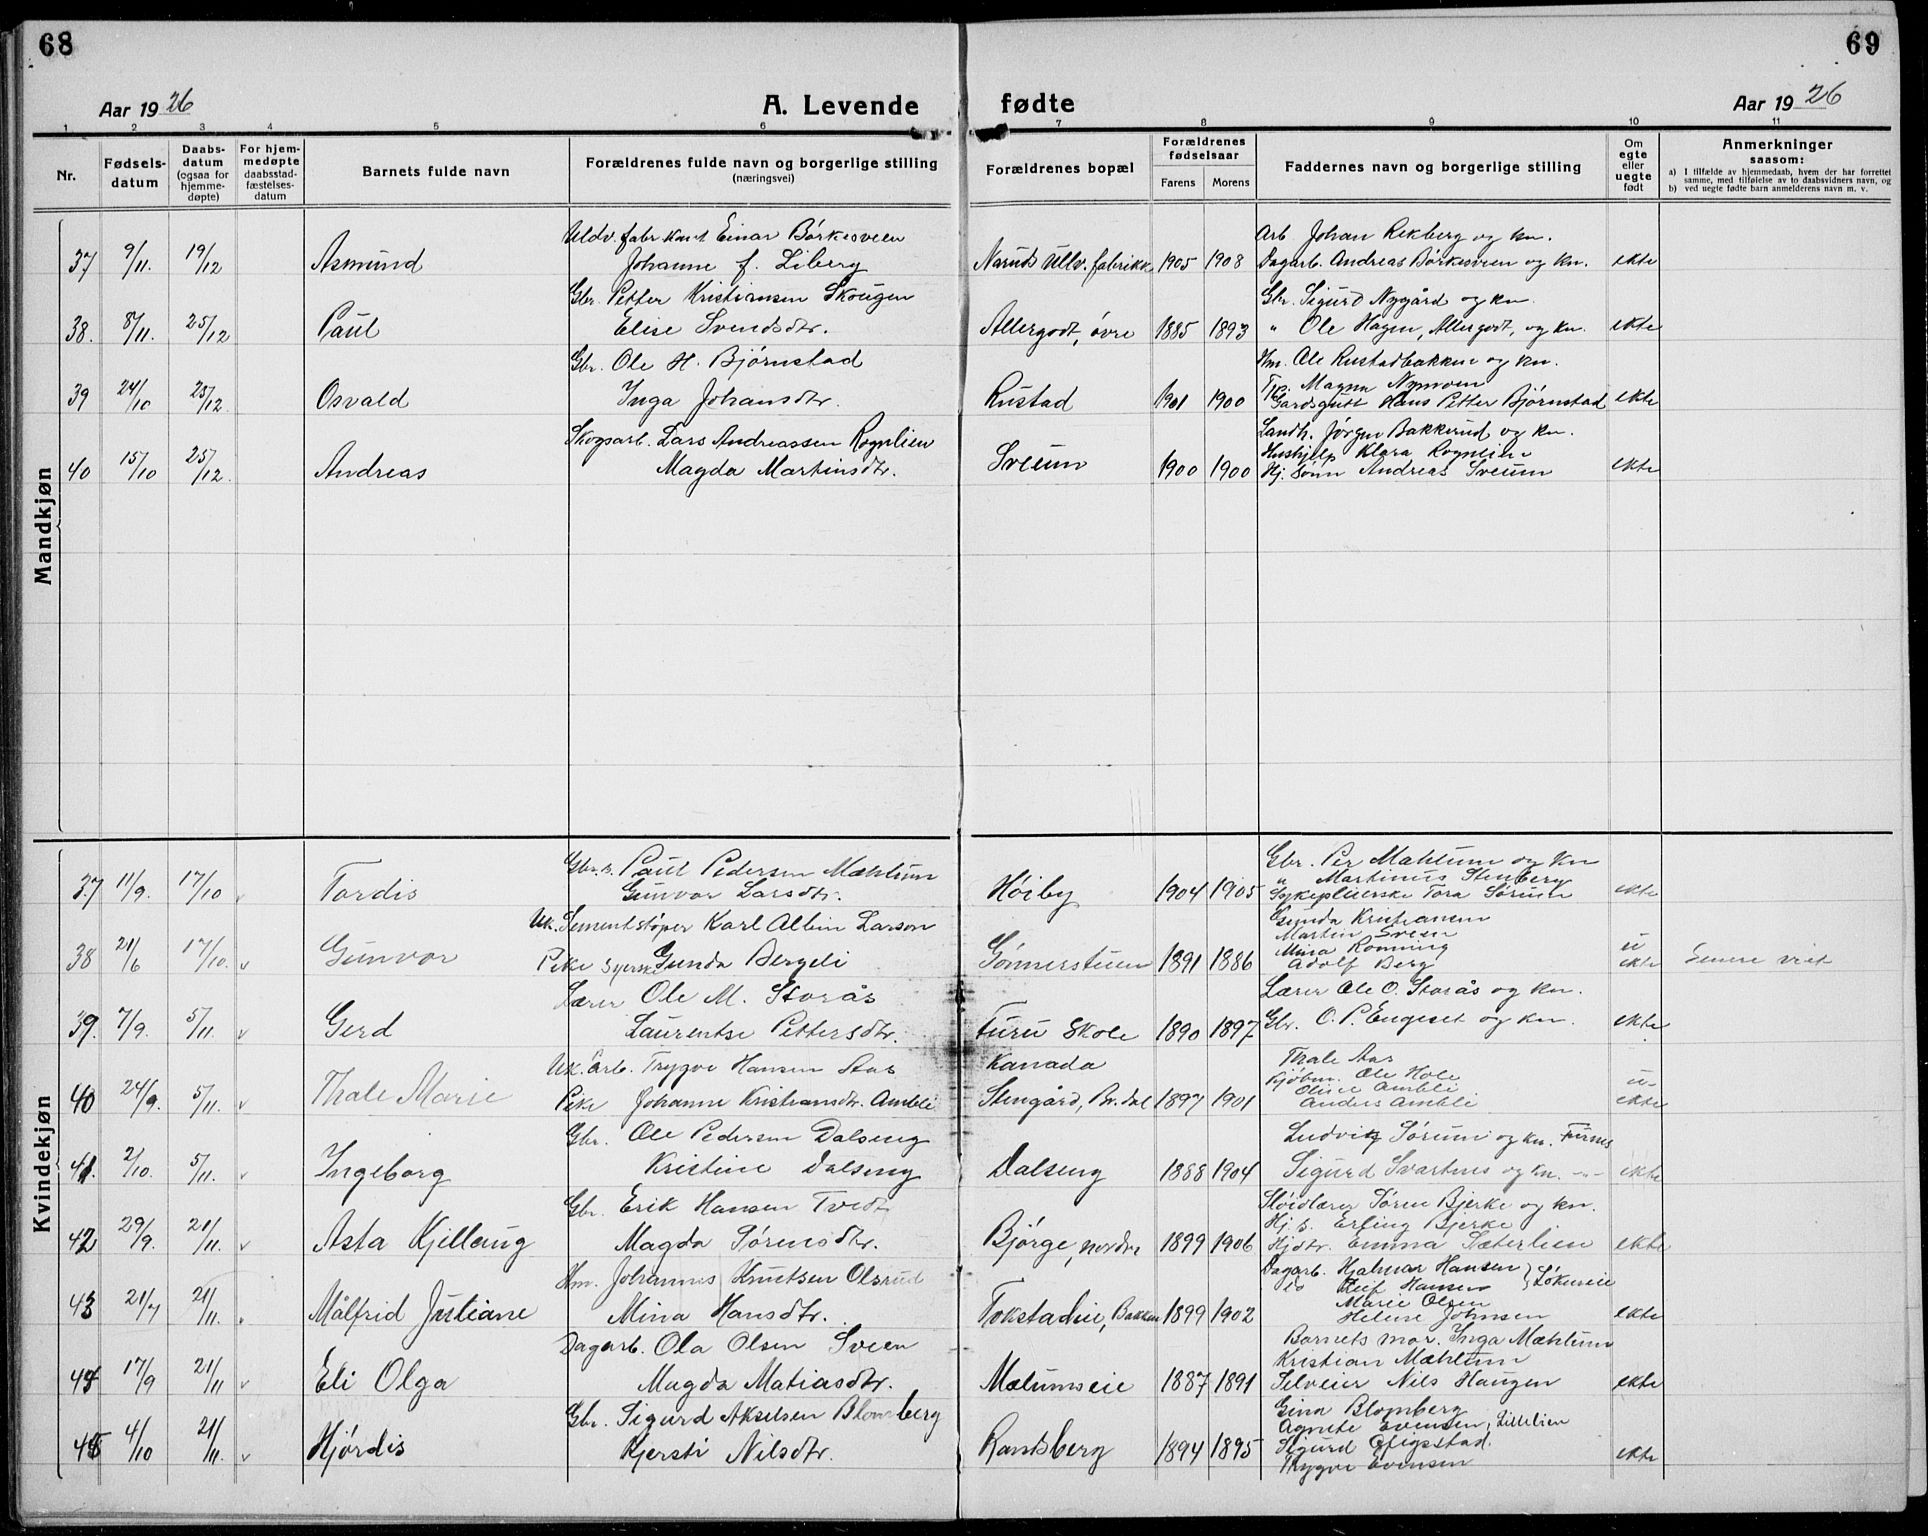 68
69
Aar 1926
A. Levende
fødte
Aar 1926
1 2 3 4 5 6 7 8 9 10 11
Nr.
Fødsels-
datum
Daabs-
datum
(ogsaa for
hjemme-
døpte)
For hjem-
medøpte
daabsstad-
fæstelses-
datum
Barnets fulde navn
Forældrenes fulde navn og borgerlige stilling
(næringsvei)
Forældrenes bopæl
Forældrenes
fødselsaar
Farens Morens
Faddernes navn og borgerlige stilling
Om
egte
eller
uegte
født
Anmerkninger
saasom:
a) I tilfælde av hjemmedaab, hvem der har forrettet
samme, med tilføielse av to daabsvidners navn, og
b) ved uegte fødte barn anmelderens navn m. v.
Mandkjøn
Uldv. fabr. Einar Börkesveen Arb. Johan Rekberg og kn.
37 9/11. 19/12 Asmund Johanne f. Liberg Naruds Ullv. fabrikk 1905 1908 Dagarb. Andreas Börkesveen og kn. ekte
Gbr. Petter Kristiansen Skougen Gbr. Sigurd Nygård og kn.
38. 8/11. 25/12 Paul Elise Svendsdtr. Allergodt, övre 1885 1893 " Ole Hagen, Allergodt, og kn. ekte
Gbr. Ole H. Bjørnstad Hm. Ole Rustadbakken og kn.
Magna Nymoen
39 24/10 25/12 Osvald Inga Johansdtr. Rustad 1901 1900 Gardsgutt Hans Petter Björnstad ekte
Skogsarb. Lars Andreassen Rognlien Landh. Jörgen Bakkerud og kn.
Hushjelp Klara Rognlien
40 15/10 25/12. Andreas Magda Martinsdtr. Sveum 1900 1900 Hj. sönn Andreas Sveum ekte
Kvindekjøn
Gbr.s. Paul Pedersen Mæhlum Gbr. Per Mæhlum og kn
" Martinus Stenberg
37 11/9. 17/10 v Tordis Gunvor Larsdtr. Höiby 1904 1905 Sykepleierske Tora Sörum ekte
Uk. Sementstöper Karl Albin Larson Gunda Kristiansen
Martin Sveen
Mina Rönning u
38 21/6 17/10. v Gunvor Pike Syersk Gunda Bergeli Gönnerstuen 1891 1886 Adolf Berg ekte Senere viet
Lærer Ole M. Storås Lærer Ole O. Storås og kn.
39. 7/9. 5/11. v Gerd Laurentse Pettersdtr. Furu Skole 1890 1897 Gbr. O. P. Engeset og kn. ekte
Uk. arb. Trygve Hansen Aas Kanada Thale Aas
Kjöbm. Ole Hole
Olise Ambli u-
40 24/9. 5/11. v Thale Marie Pike Johanne Kristiansdtr. Ambli Stengård, Br.dal 1897 1901 Anders Ambli ekte
Gbr. Ole Pedersen Dalseng Ludvik Sörum og kn. Furnes
41. 2/10. 5/11. v Ingeborg Kristine Dalseng Dalseng 1888 1904 Sigurd Svartnes og kn. -"- ekte
Gbr. Erik Hansen Tvedt Slöidlærer Sören Bjerke og kn.
Hj.s. Erling Bjerke
42 29/9. 21/11. v Asta Kjellaug Magda Sörensdtr. Björge, nordre 1899 1906 Hjdtr. Emma Sæterlien ekte
Hm. Johannes Knutsen Olsrud Dagarb. Hjalmar Hansen
do Leif Hansen } Lökeneie
Marie Olsen
43 21/7 21/11. Målfrid Justiane Mina Hansdtr. Tokstadeie, Bakken 1899 1902 Helene Johnsen ekte
Dagarb. Ola Olsen Sveen Barnets mor. Inga Mæhlum
Kristian Mæhlum
44 17/9 21/11 v Eli Olga Magda Matiasdtr. Mælumseie 1887 1891 Selveier Nils Haugen ekte
Gbr. Sigurd Akselsen Blomberg Gina Blomberg
Agnete Evensen, Lillelien
Sigurd
45 4/10 21/11. v Hjördis Kjersti Nilsdtr. Ransberg 1894 1895 Trygve Evensen ekte